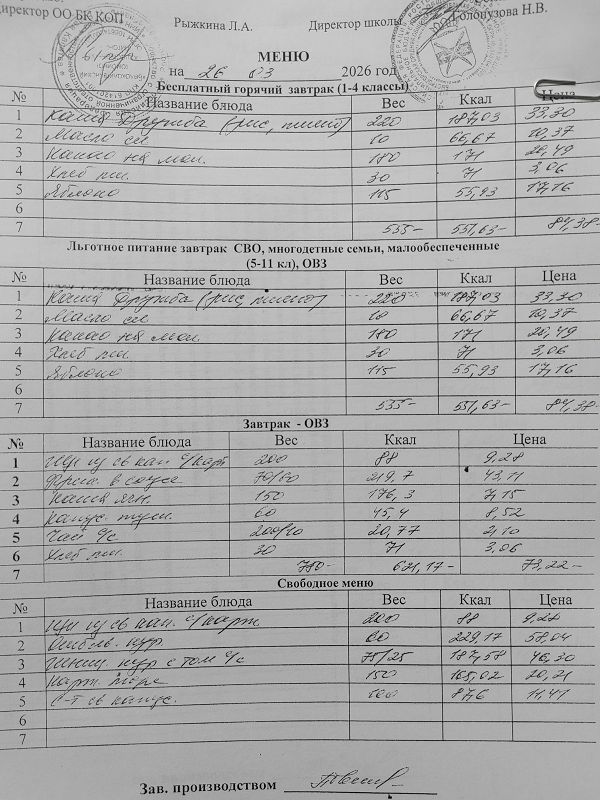 Директор ОО БК КОП
Рыжкина Л.А. Директор школы Голопузова Н.В.
МЕНЮ
на 26 03 2026 год
Бесплатный горячий завтрак (1-4 классы)
№ Название блюда Вес Ккал Цена
1 Каша Дружба (рис, пшено) 220 187,03 33,30
2 Масло сл 10 66,67 10,37
3 Какао на мол. 180 171 20,49
4 Хлеб пш. 30 71 3,06
5 Яблоко 115 55,93 17,16
6
7 555- 551,63- 84,38-
Льготное питание завтрак СВО, многодетные семьи, малообеспеченные
(5-11 кл), ОВЗ
№ Название блюда Вес Ккал Цена
1 Каша Дружба (рис, пшено) 220 187,03 33,30
2 Масло сл 10 66,67 10,37
3 Какао на мол. 180 171 20,49
4 Хлеб пш. 30 71 3,06
5 Яблоко 115 55,93 17,16
6
7 555- 551,63- 84,38-
Завтрак - ОВЗ
№ Название блюда Вес Ккал Цена
1 Щи из св кап. с/карт 200 88 9,28
2 в соусе 219,7 43,11
3 Каша 150 176,3 7,15
4 Капус. туш. 60 45,4 8,52
5 Чай с/с 200/10 20,77 2,10
6 Хлеб пш. 30 71 3,06
7 780- 621,17- 73,22-
Свободное меню
№ Название блюда Вес Ккал Цена
1 Щи из св кап. с/карт 200 88 9,28
2 кур. 60 229,17 58,04
3 Шниц кур с том с/с 75/25 187,58 46,30
4 Карт. пюре 150 165,02 20,21
5 С-т св капус. 100 87,6 11,41
6
7
Зав. производством